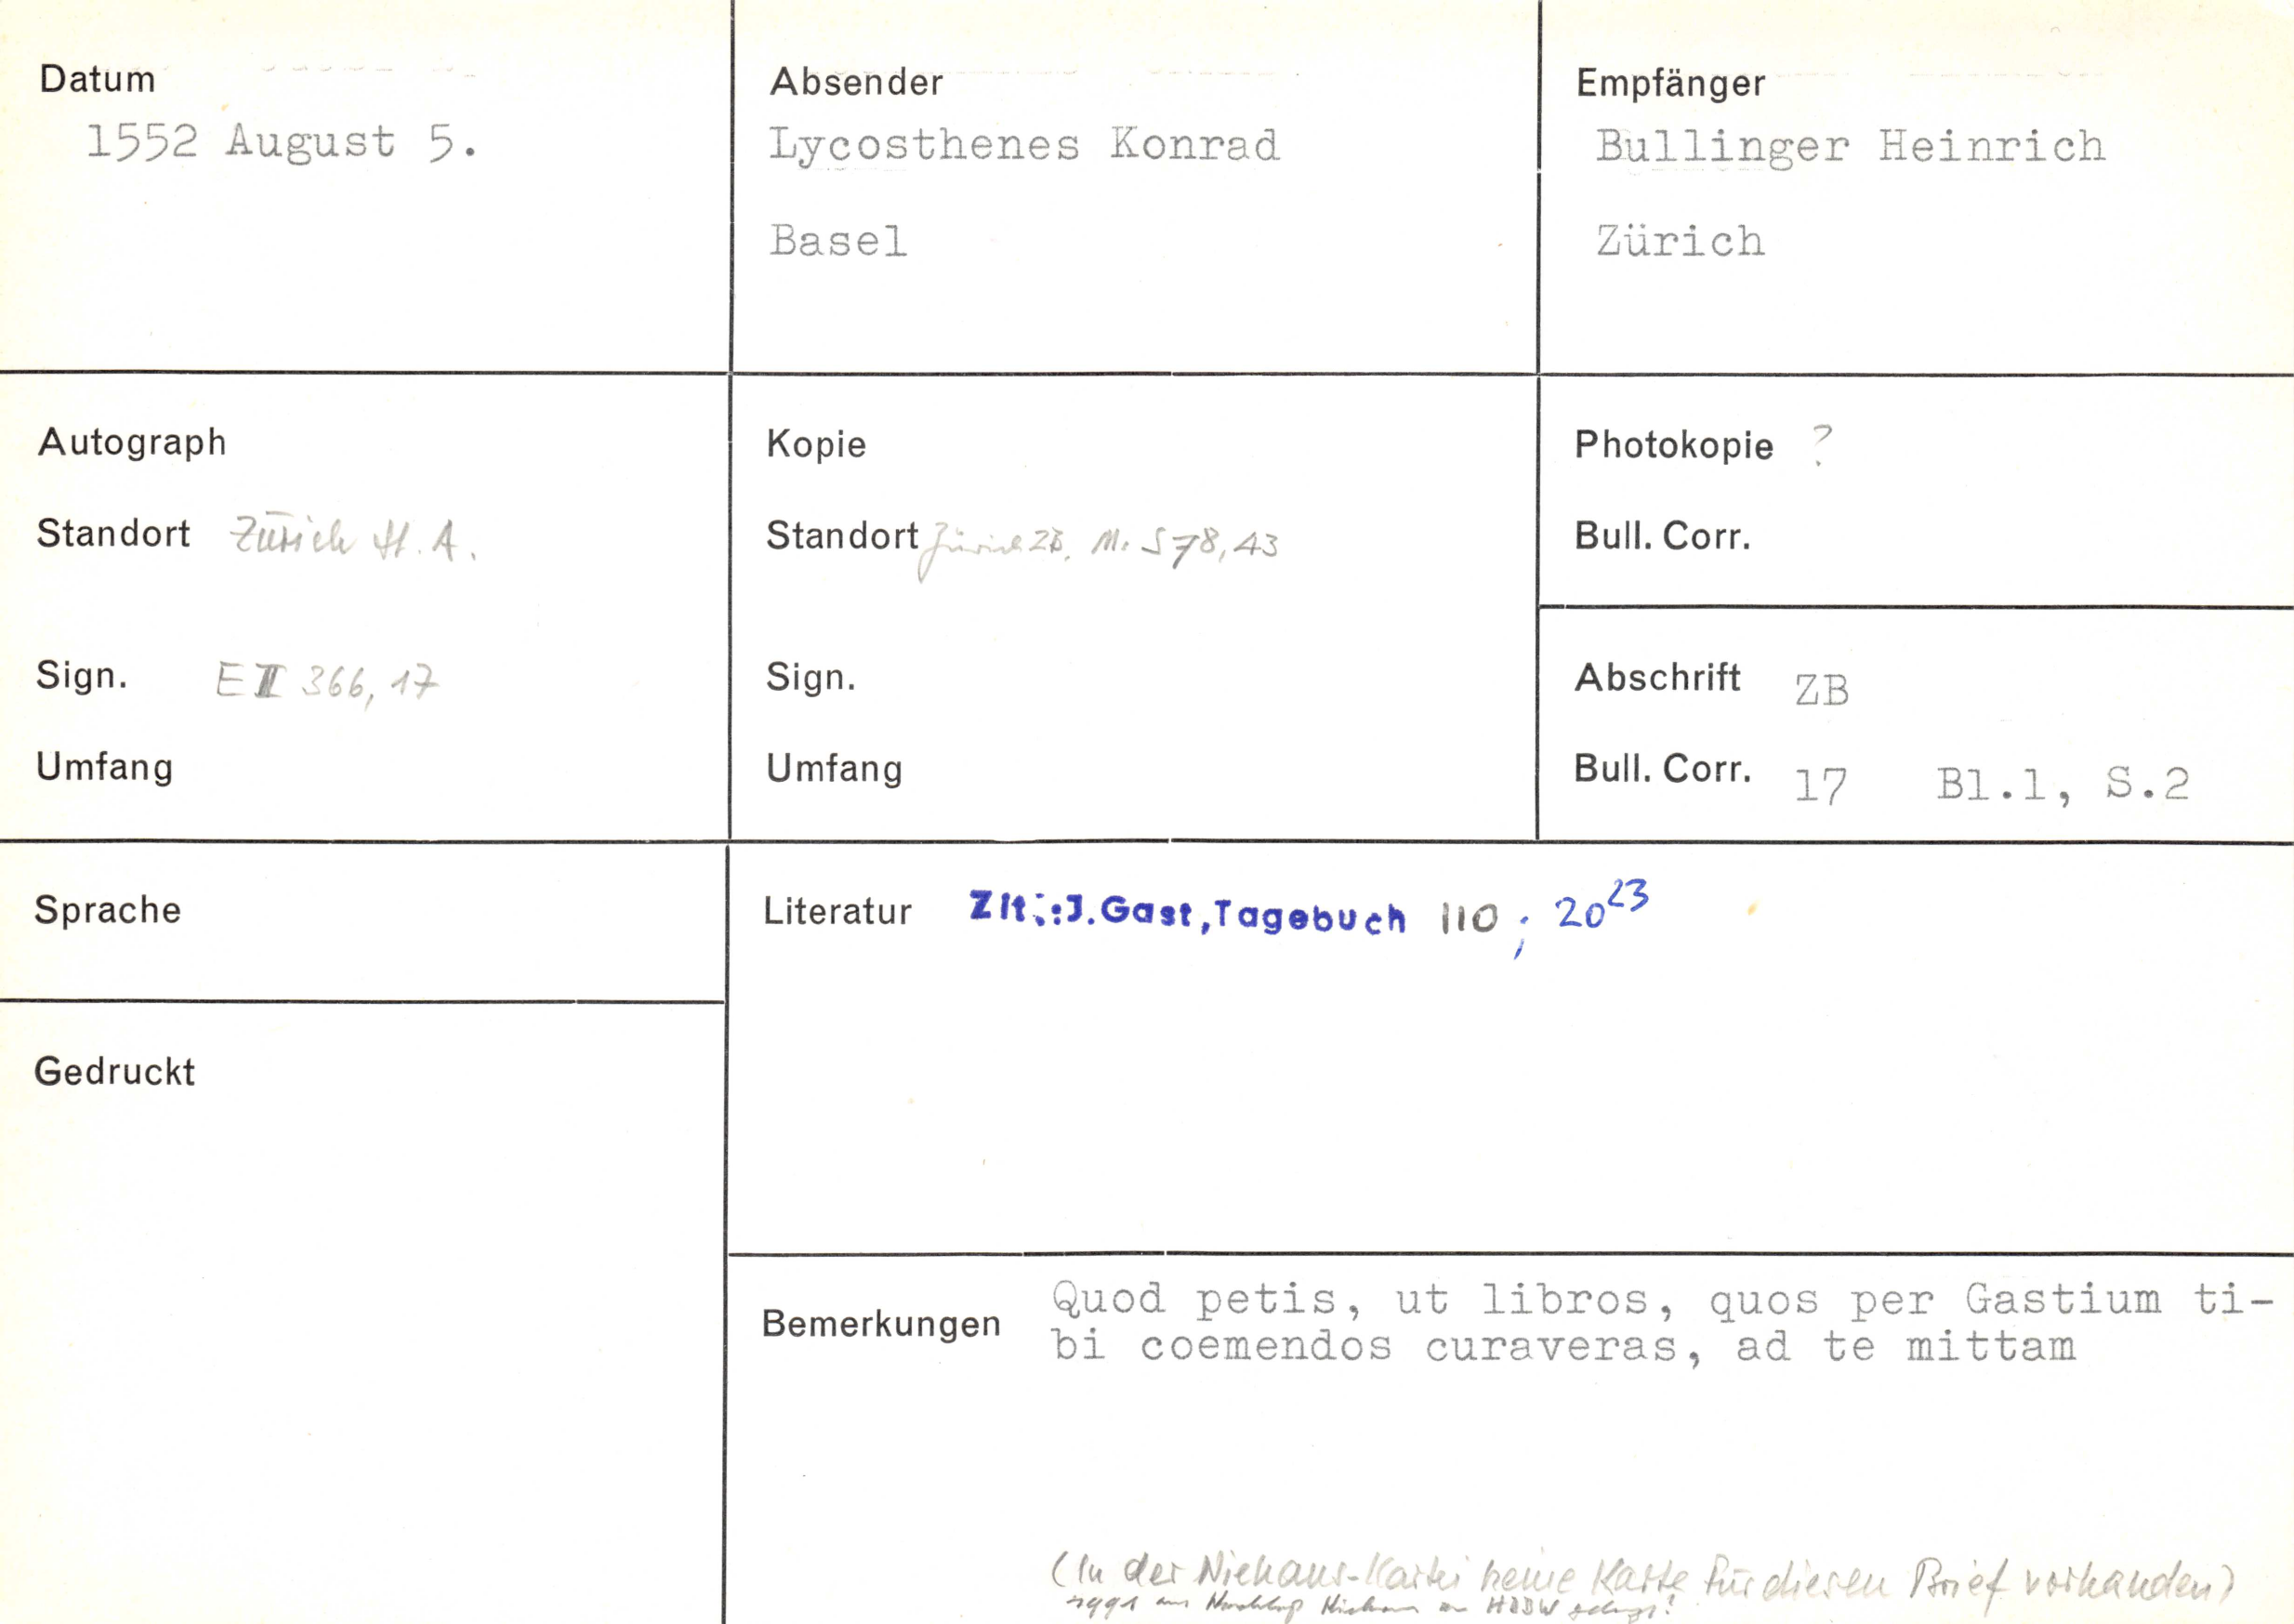 Datum
1552 August 5.
Absender
Lycosthenes Konrad
Basel
Empfänger
Bullinger Heinrich
Zürich
Autograph
Standort Zürich St. A.
Sign. E II 366, 17
Umfang
Kopie
Standort Zürich ZB, Ms. S 78, 43
Sign.
Umfang
Photokopie ?
Bull. Corr.
Abschrift ZB
Bull. Corr. 17 Bl.1, S.2
Sprache
Literatur Zit.:J.Gast,Tagebuch 110 ; 20 23
Gedruckt
Bemerkungen
Quod petis, ut libros, quos per Gastium ti-
bi coemendos curaveras, ad te mittam
(In der Niehaus-Kartei keine Karte für diesen Brief vorhanden)
1991 aus Niehaus an HBBW